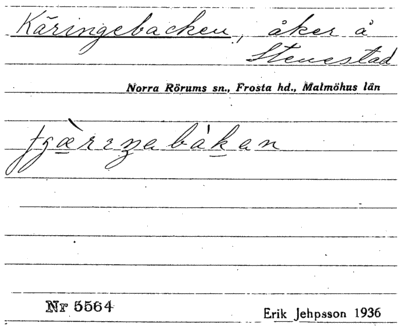 Käringebacken, åker å
Stenestad
Norra Rörums sn., Frosta hd., Malmöhus län
Nr 5564
Erik Jehpsson 1936